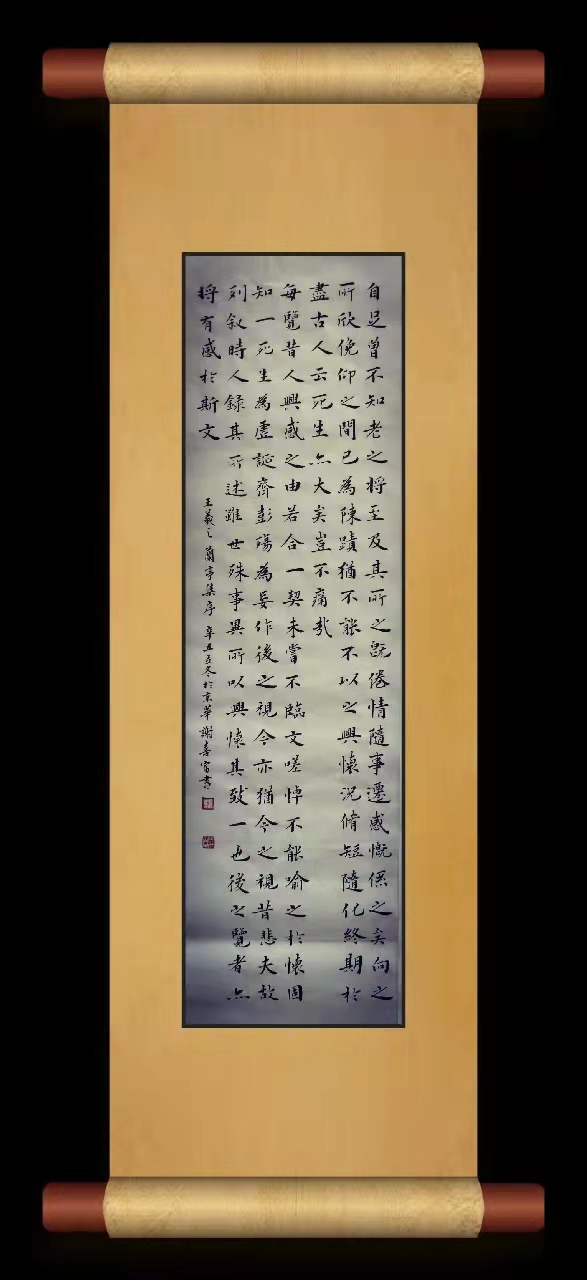 自足曾不知老之将至及其所之既倦情隨事遷感慨係之矣向之
所欣俛仰之間已為陳蹟猶不能不以之興懷況脩短隨化終期於
盡古人云死生亦大矣豈不痛哉
每覽昔人興感之由若合一契未嘗不臨文嗟悼不能喻之於懷固
知一死生為虛誕齊彭殤為妄作後之視今亦猶今之視昔悲夫故
列叙時人錄其所述雖世殊事異所以興懷其致一也後之覽者亦
将有感於斯文
王羲之蘭亭集序 辛丑冬於京華謝喜富書